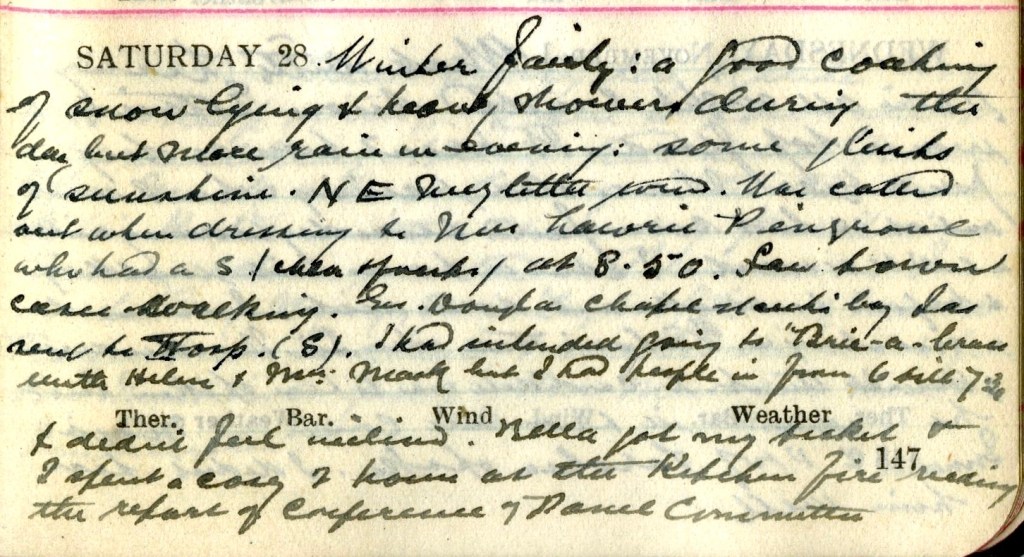 SATURDAY 28. Winter fairly: a good coating
of snow lying & heavy showers during the
day but more rain in evening: some blinks
of sunshine. N E wind. Was called
out when dressing to Mrs Lawrie Pengrove
who had a S at 8.50. Saw town
cases walking. Geo. chapel by Jas
sent to Hosp. (S). I had intended going to "Bric-a-brac
with Helen & Mrs Mack but I had people in from 6 till 7.30
Ther. Bar. Wind Weather
& didn't feel inclined. Bella got my ticket &
I spent a cosy 2 hours at the Kitchen fire reading
147
the report of Conference of Panel Committee